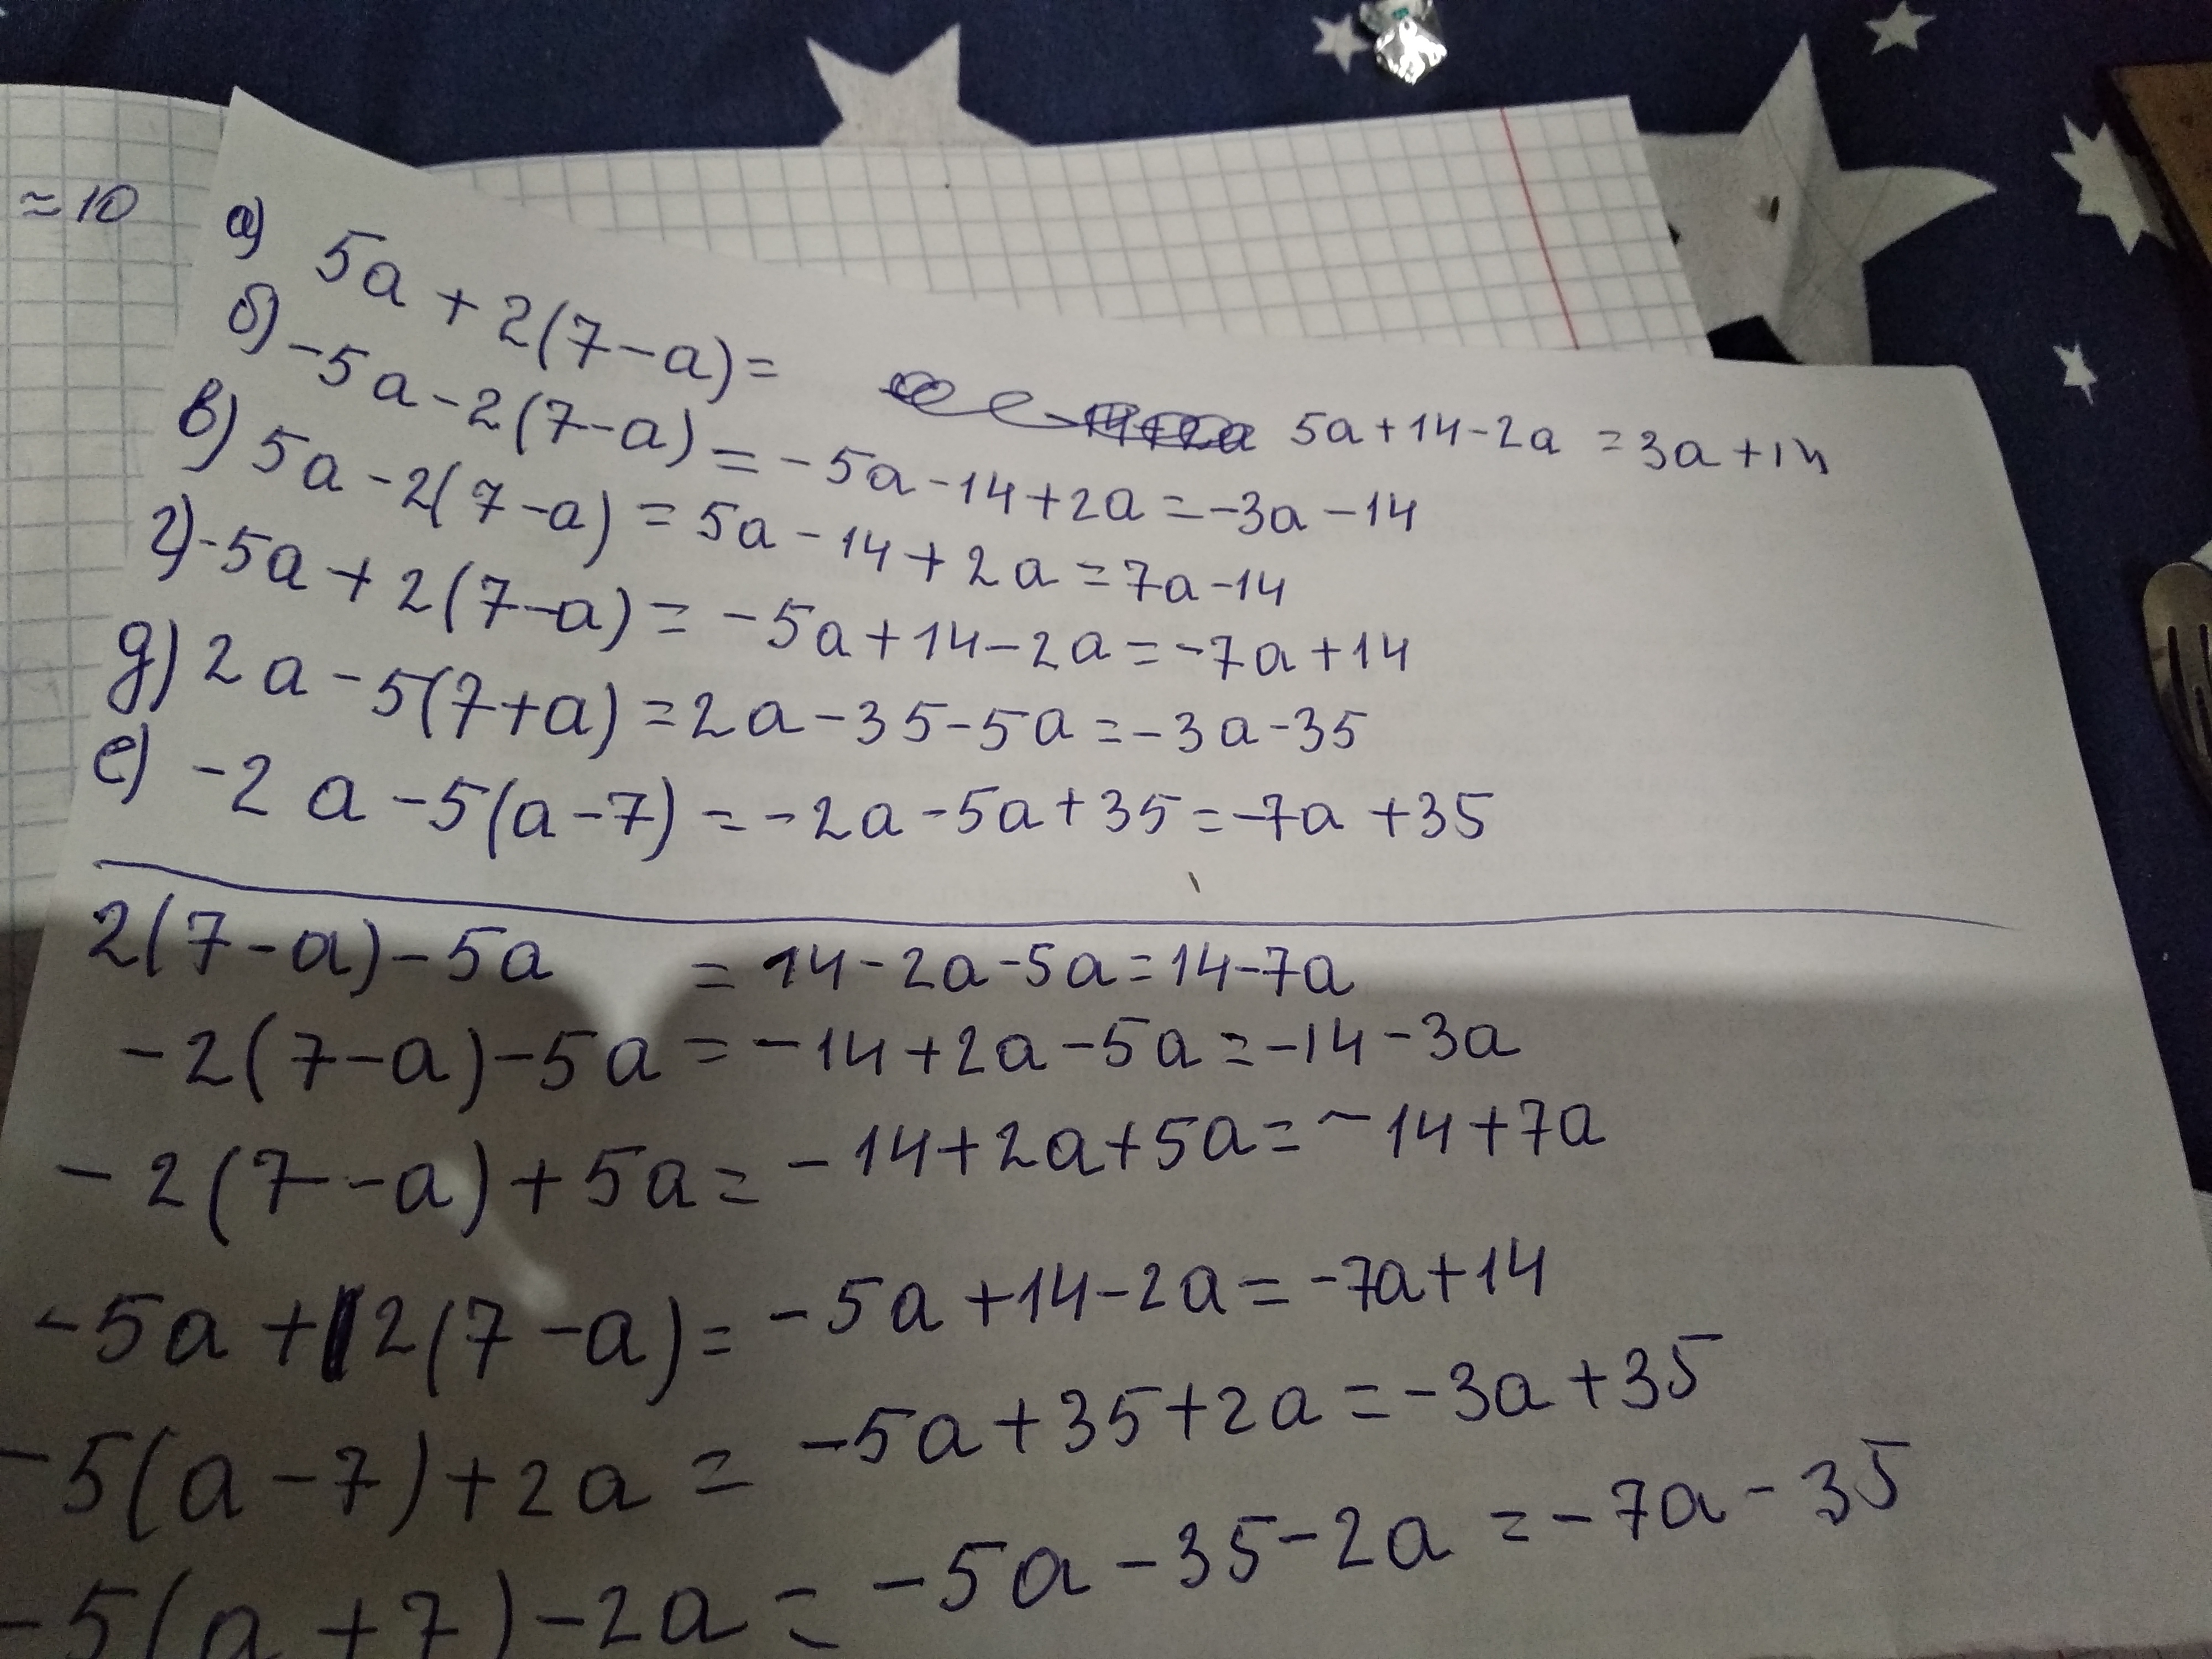 ≈10
а) 5a + 2(7-a) = 5a+14-2a = 3a+14
б) -5a-2(7-a) = -5a-14+2a = -3a-14
в) 5a-2(7-a) = 5a-14+2a = 7a-14
г) -5a+2(7-a) = -5a+14-2a = -7a+14
д) 2a-5(7+a) = 2a-35-5a = -3a-35
е) -2a-5(a-7) = -2a-5a+35 = -7a+35
2(7-a)-5a = 14-2a-5a = 14-7a
-2(7-a)-5a = -14+2a-5a = -14-3a
-2(7-a)+5a = -14+2a+5a = -14+7a
-5a+2(7-a) = -5a+14-2a = -7a+14
-5(a-7)+2a = -5a+35+2a = -3a+35
-5(a+7)-2a = -5a-35-2a = -7a-35